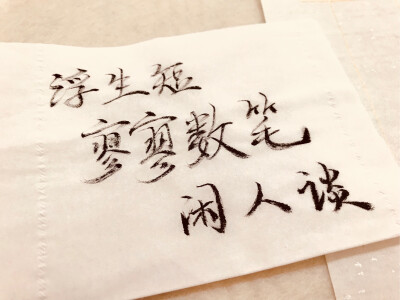 浮生短
寥寥数笔
闲人谈